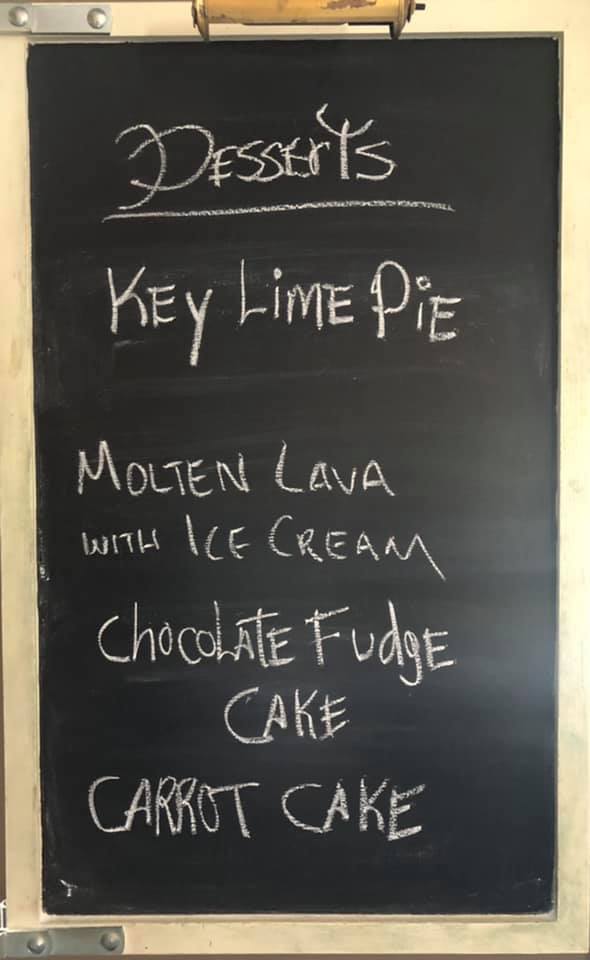 Desserts
Key Lime Pie
Molten Lava
with Ice Cream
Chocolate Fudge
Cake
Carrot Cake